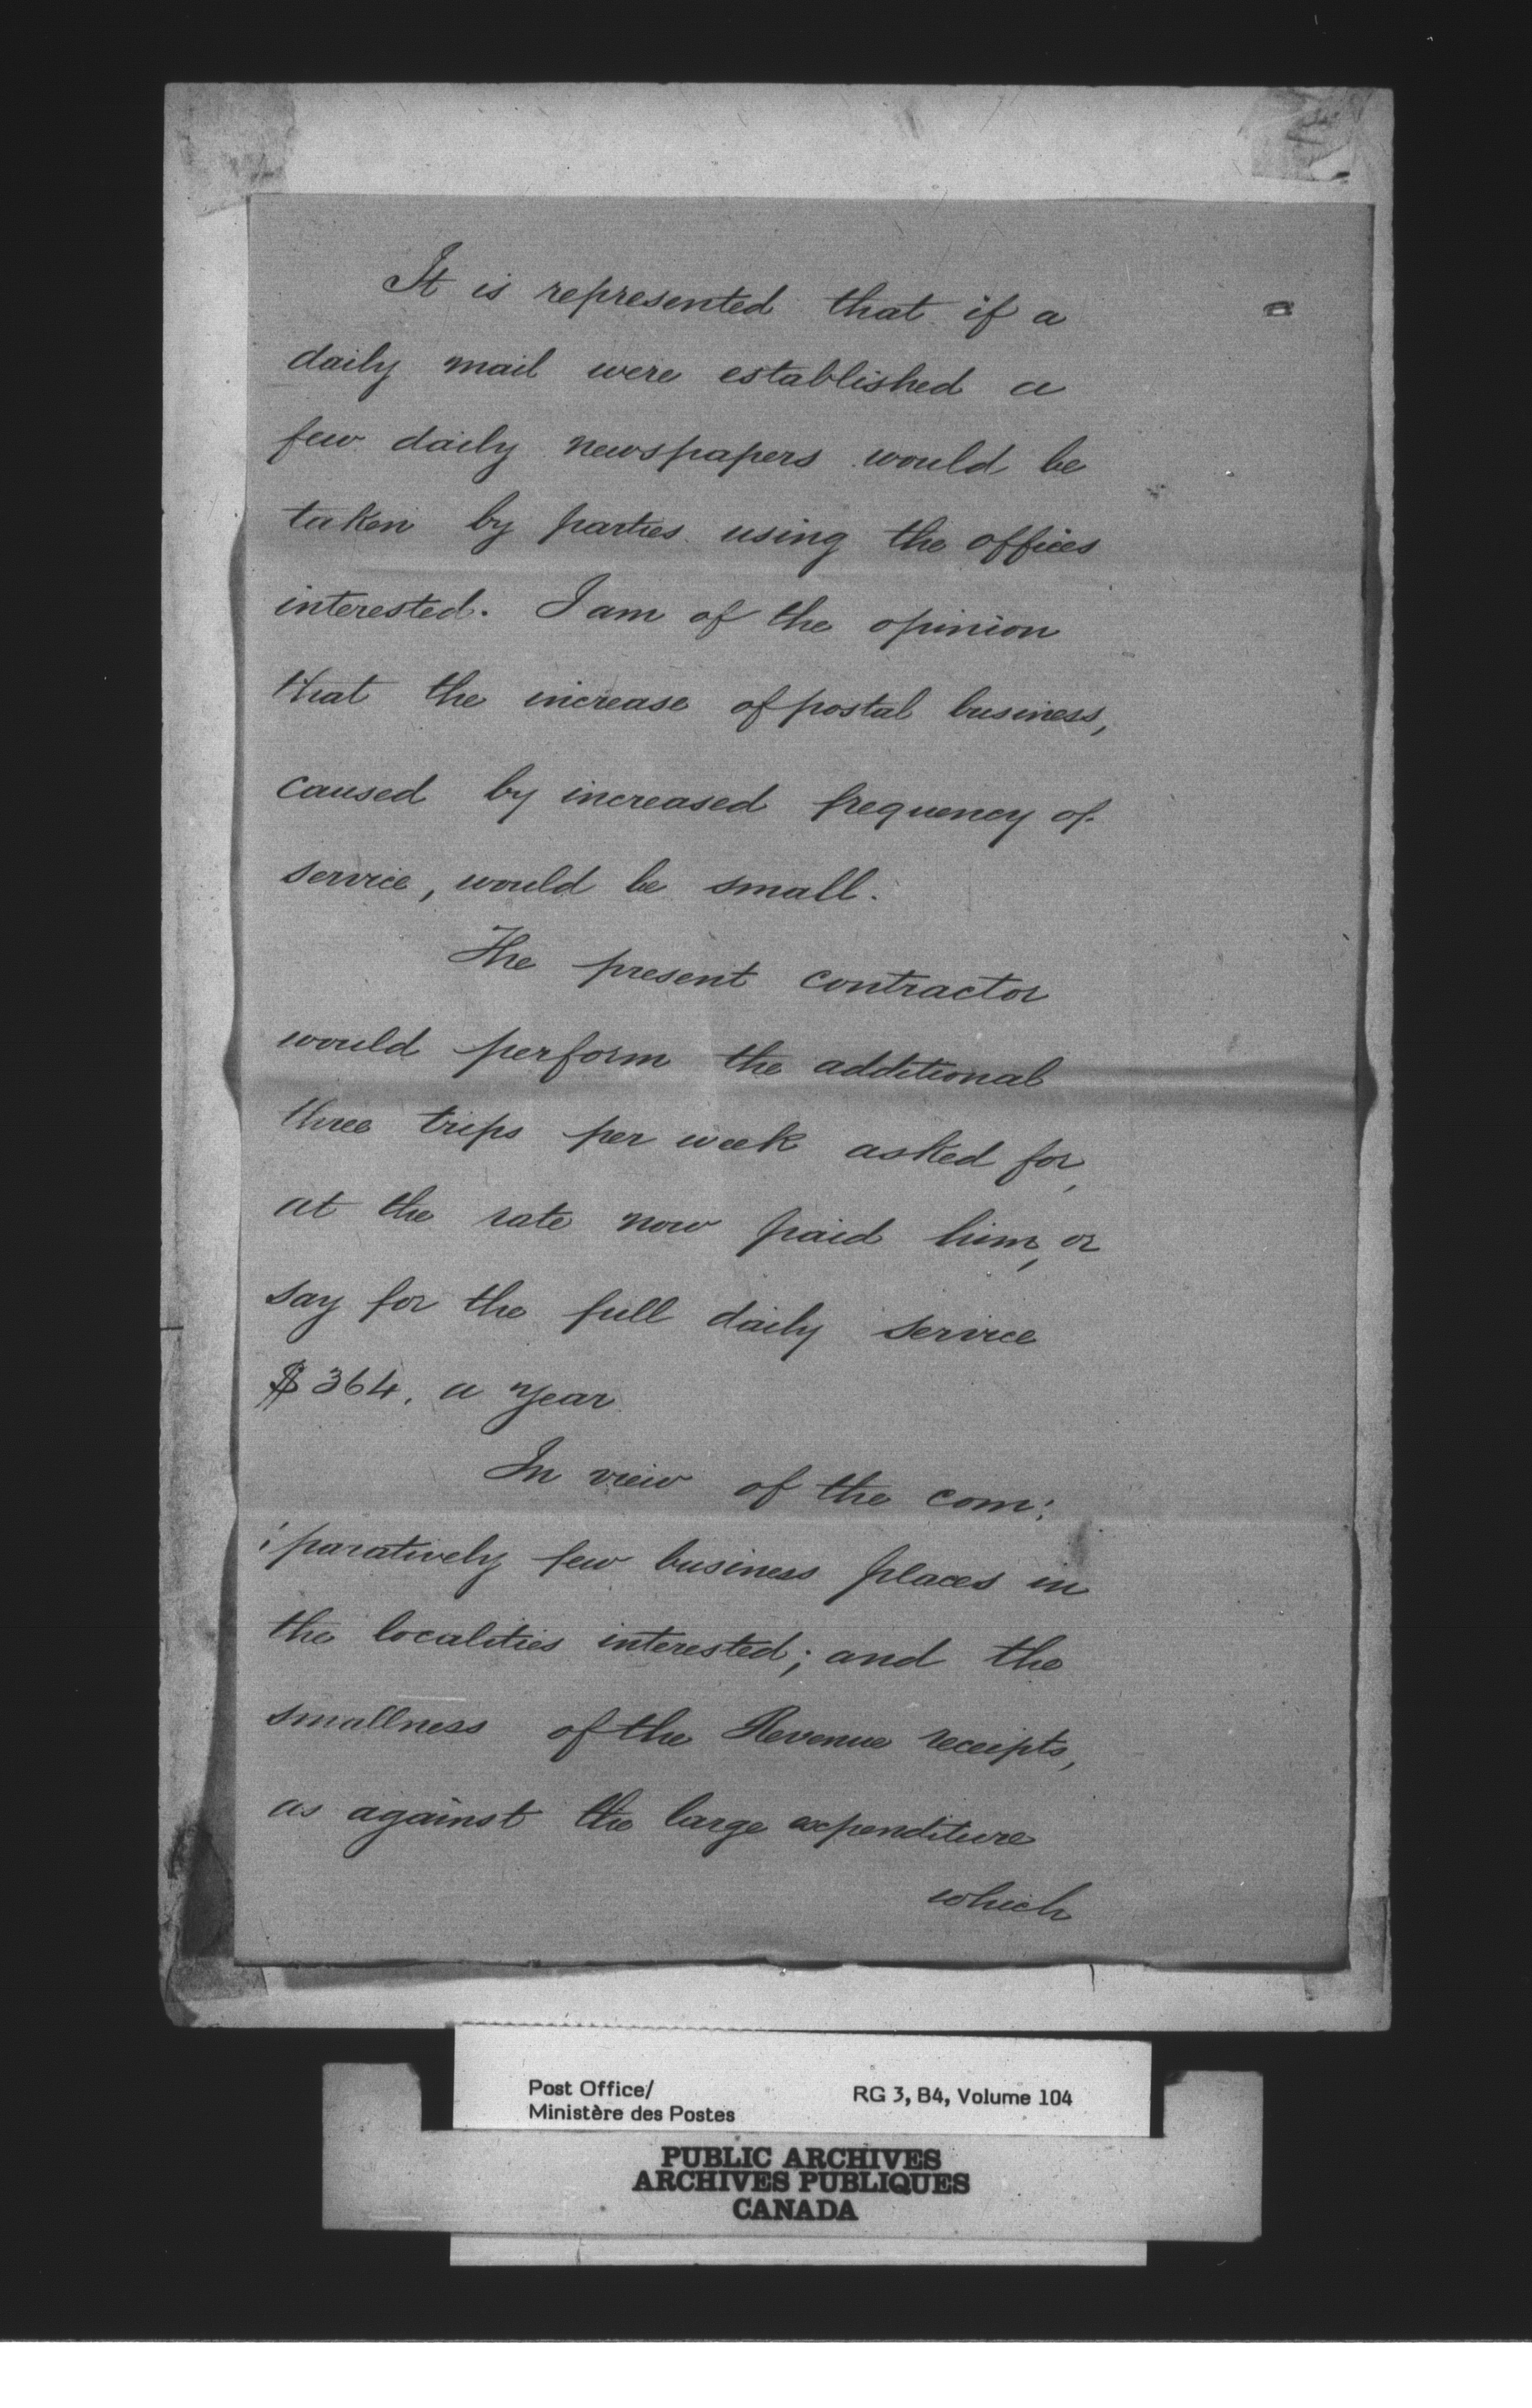 It is represented that if a
daily mail were established a
few daily newspapers would be
taken by parties using the offices
interested. I am of the opinion
that the increase of postal business,
caused by increased frequency of
service, would be small.
The present contractor
would perform the additional
three trips per week asked for,
at the rate now paid him, or
say for the full daily service
$364. a year
In view of the com:
:paratively few business places in
the localities interested; and the
smallness of the Revenue receipts,
as against the large expenditure
which
Post Office/
Ministère des Postes
RG 3, B4, Volume 104
PUBLIC ARCHIVES
ARCHIVES PUBLIQUES
CANADA